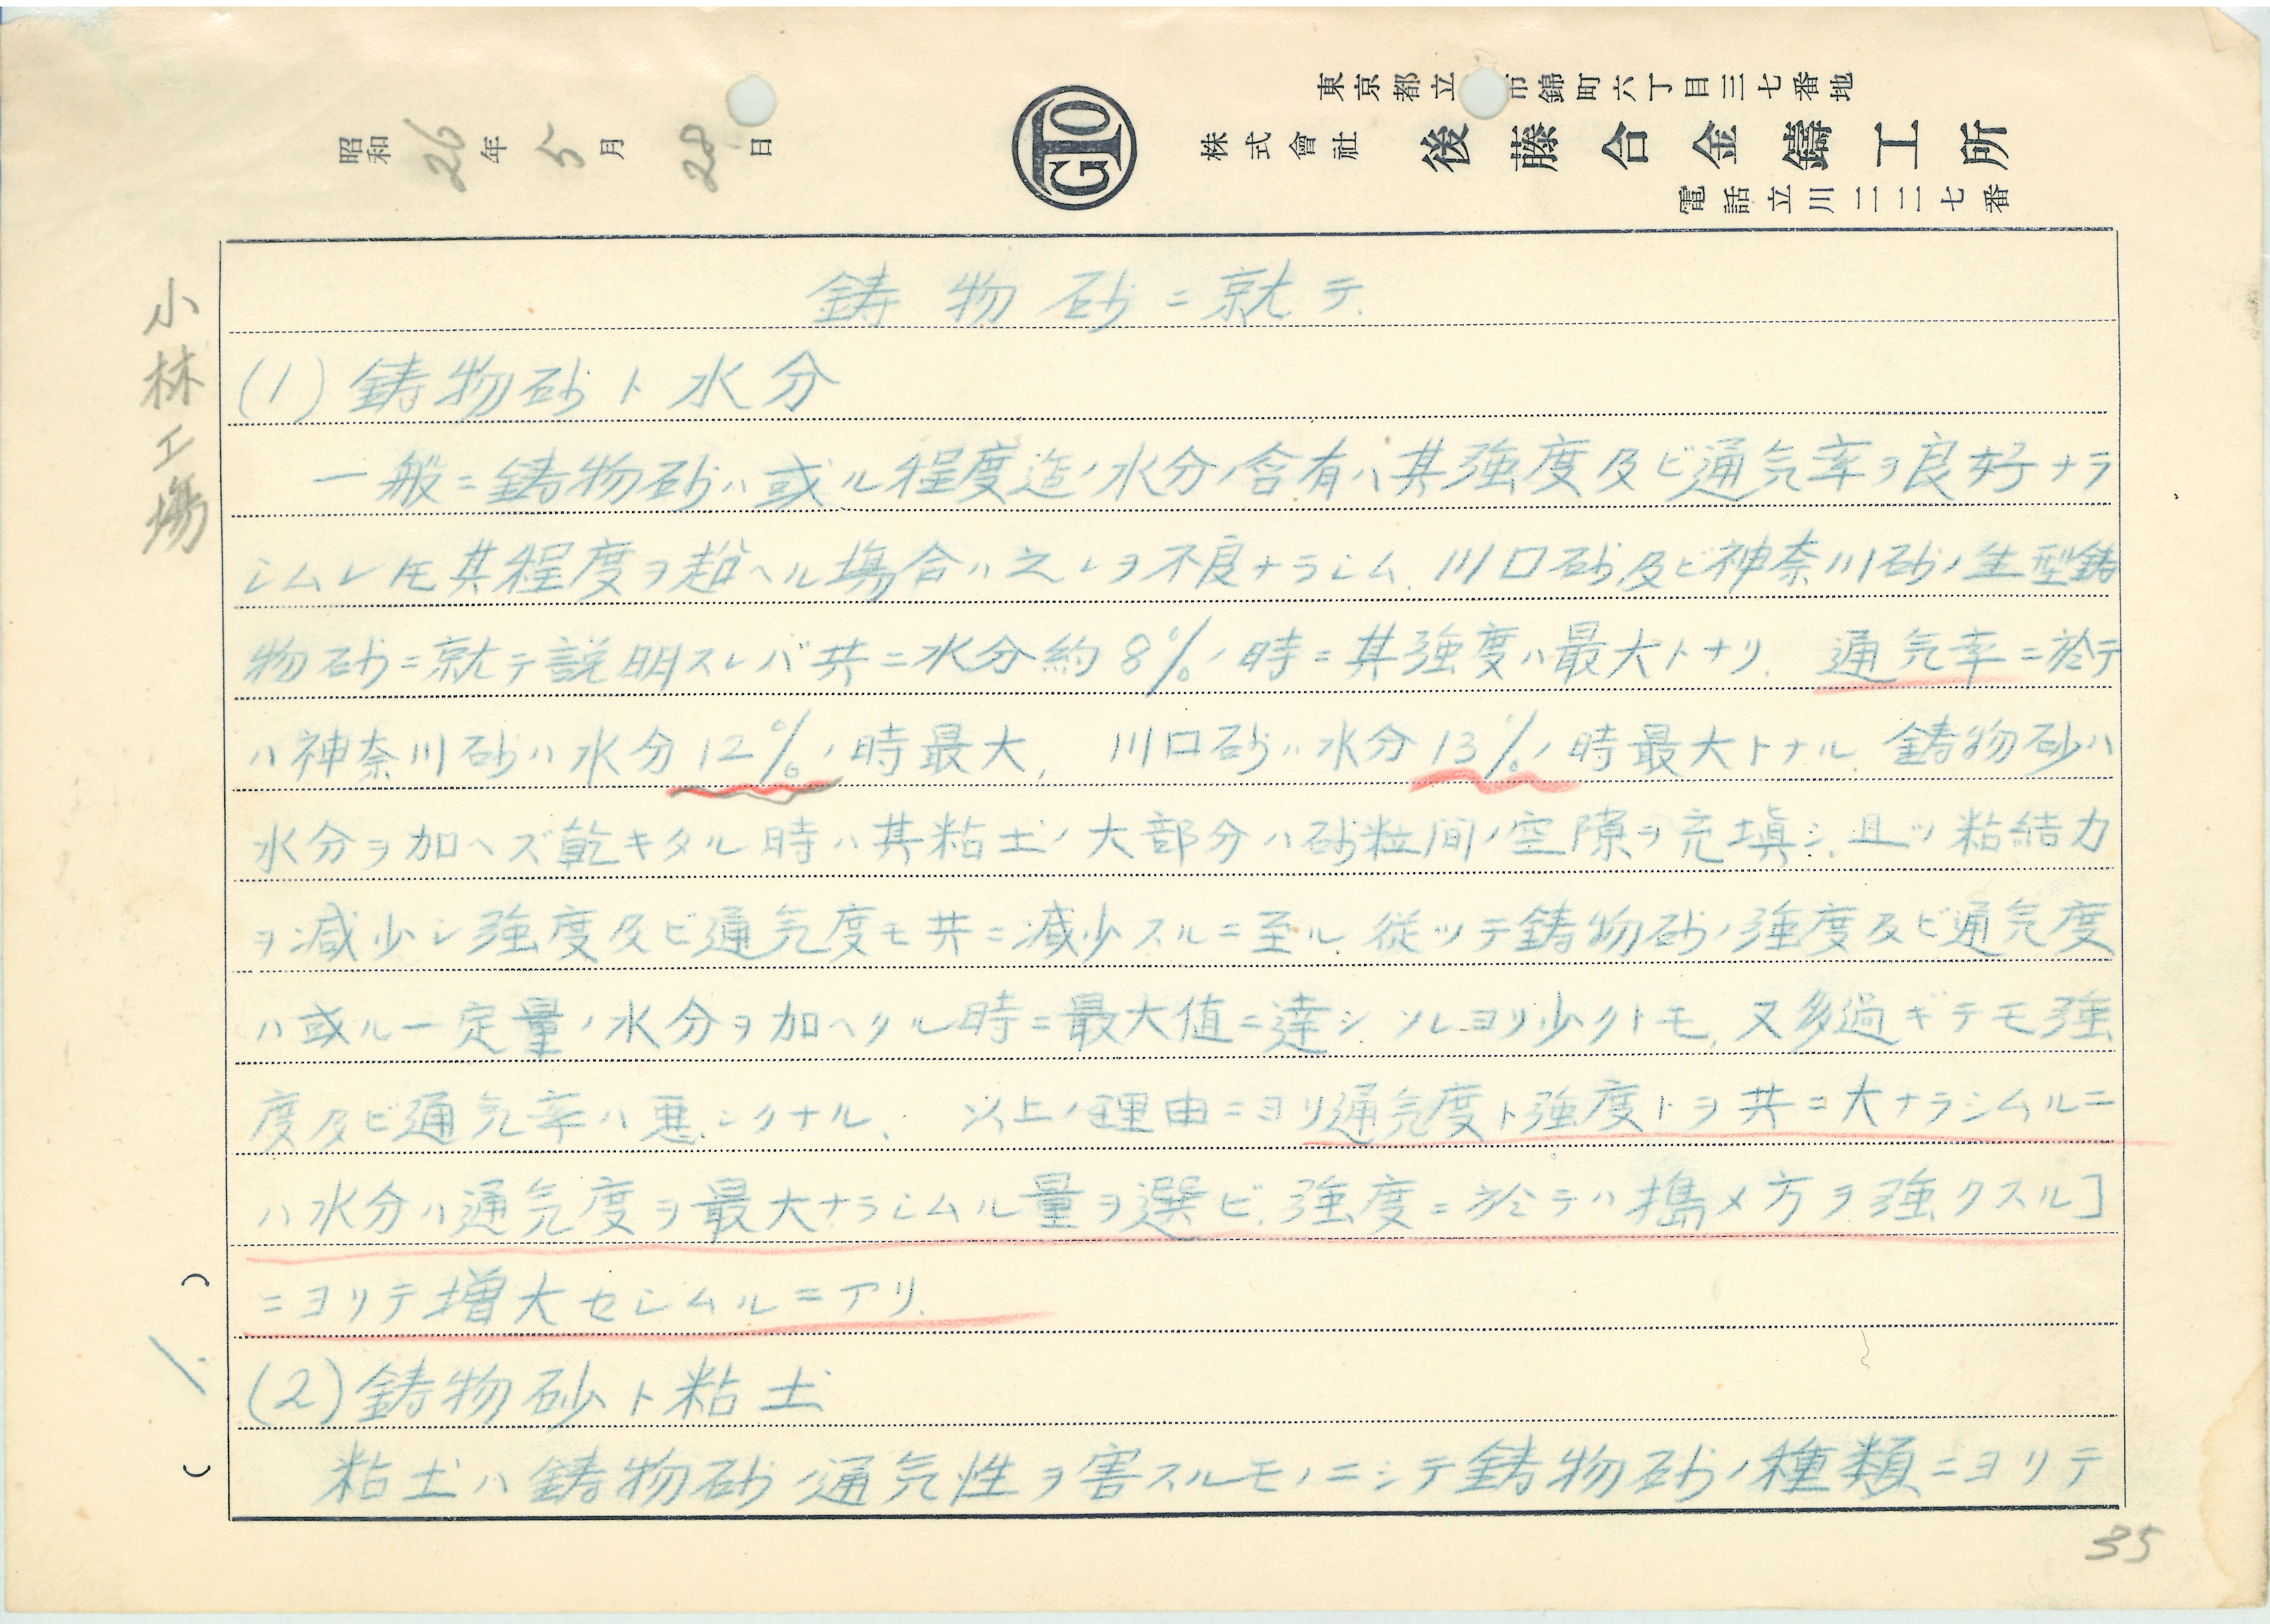 東京都立 市錦町六丁目三七番地
昭和26年5月28日
GTO
株式會社 後藤合金鑄工所
電話立川二二七番
小林工場
鋳物砂ニ就テ.
(1) 鋳物砂ト水分
一般ニ鋳物砂ハ或ル程度迄ノ水分ノ含有ハ其強度及ビ通気率ヲ良好ナラ
シムレ𪜈其程度ヲ超ヘル場合ハ之レヲ不良ナラシム. 川口砂及ビ神奈川砂ノ生型鋳
物砂ニ就テ説明スレバ共ニ水分約8%ノ時ニ其強度ハ最大トナリ. 通気率ニ於テ
ハ神奈川砂ハ水分12%ノ時最大, 川口砂ハ水分13%ノ時最大トナル. 鋳物砂ハ
水分ヲ加ヘズ乾キタル時ハ其粘土ノ大部分ハ砂粒間ノ空隙ヲ充填シ, 且ツ粘結力
ヲ減少シ強度及ビ通気度モ共ニ減少スルニ至ル. 従ツテ鋳物砂ノ強度及ビ通気度
ハ或ル一定量ノ水分ヲ加ヘタル時ニ最大値ニ達シ. ソレヨリ少クトモ, 又多過ギテモ強
度及ビ通気率ハ悪シクナル. 以上ノ理由ニヨリ通気度ト強度トヲ共ニ大ナラシムルニ
ハ水分ハ通気度ヲ最大ナラシムル量ヲ選ビ, 強度ニ於テハ搗メ方ヲ強クスルコ
ニヨリテ増大セシムルニアリ.
(2) 鋳物砂ト粘土
粘土ハ鋳物砂ノ通気性ヲ害スルモノニシテ鋳物砂ノ種類ニヨリテ
( 1. )
35